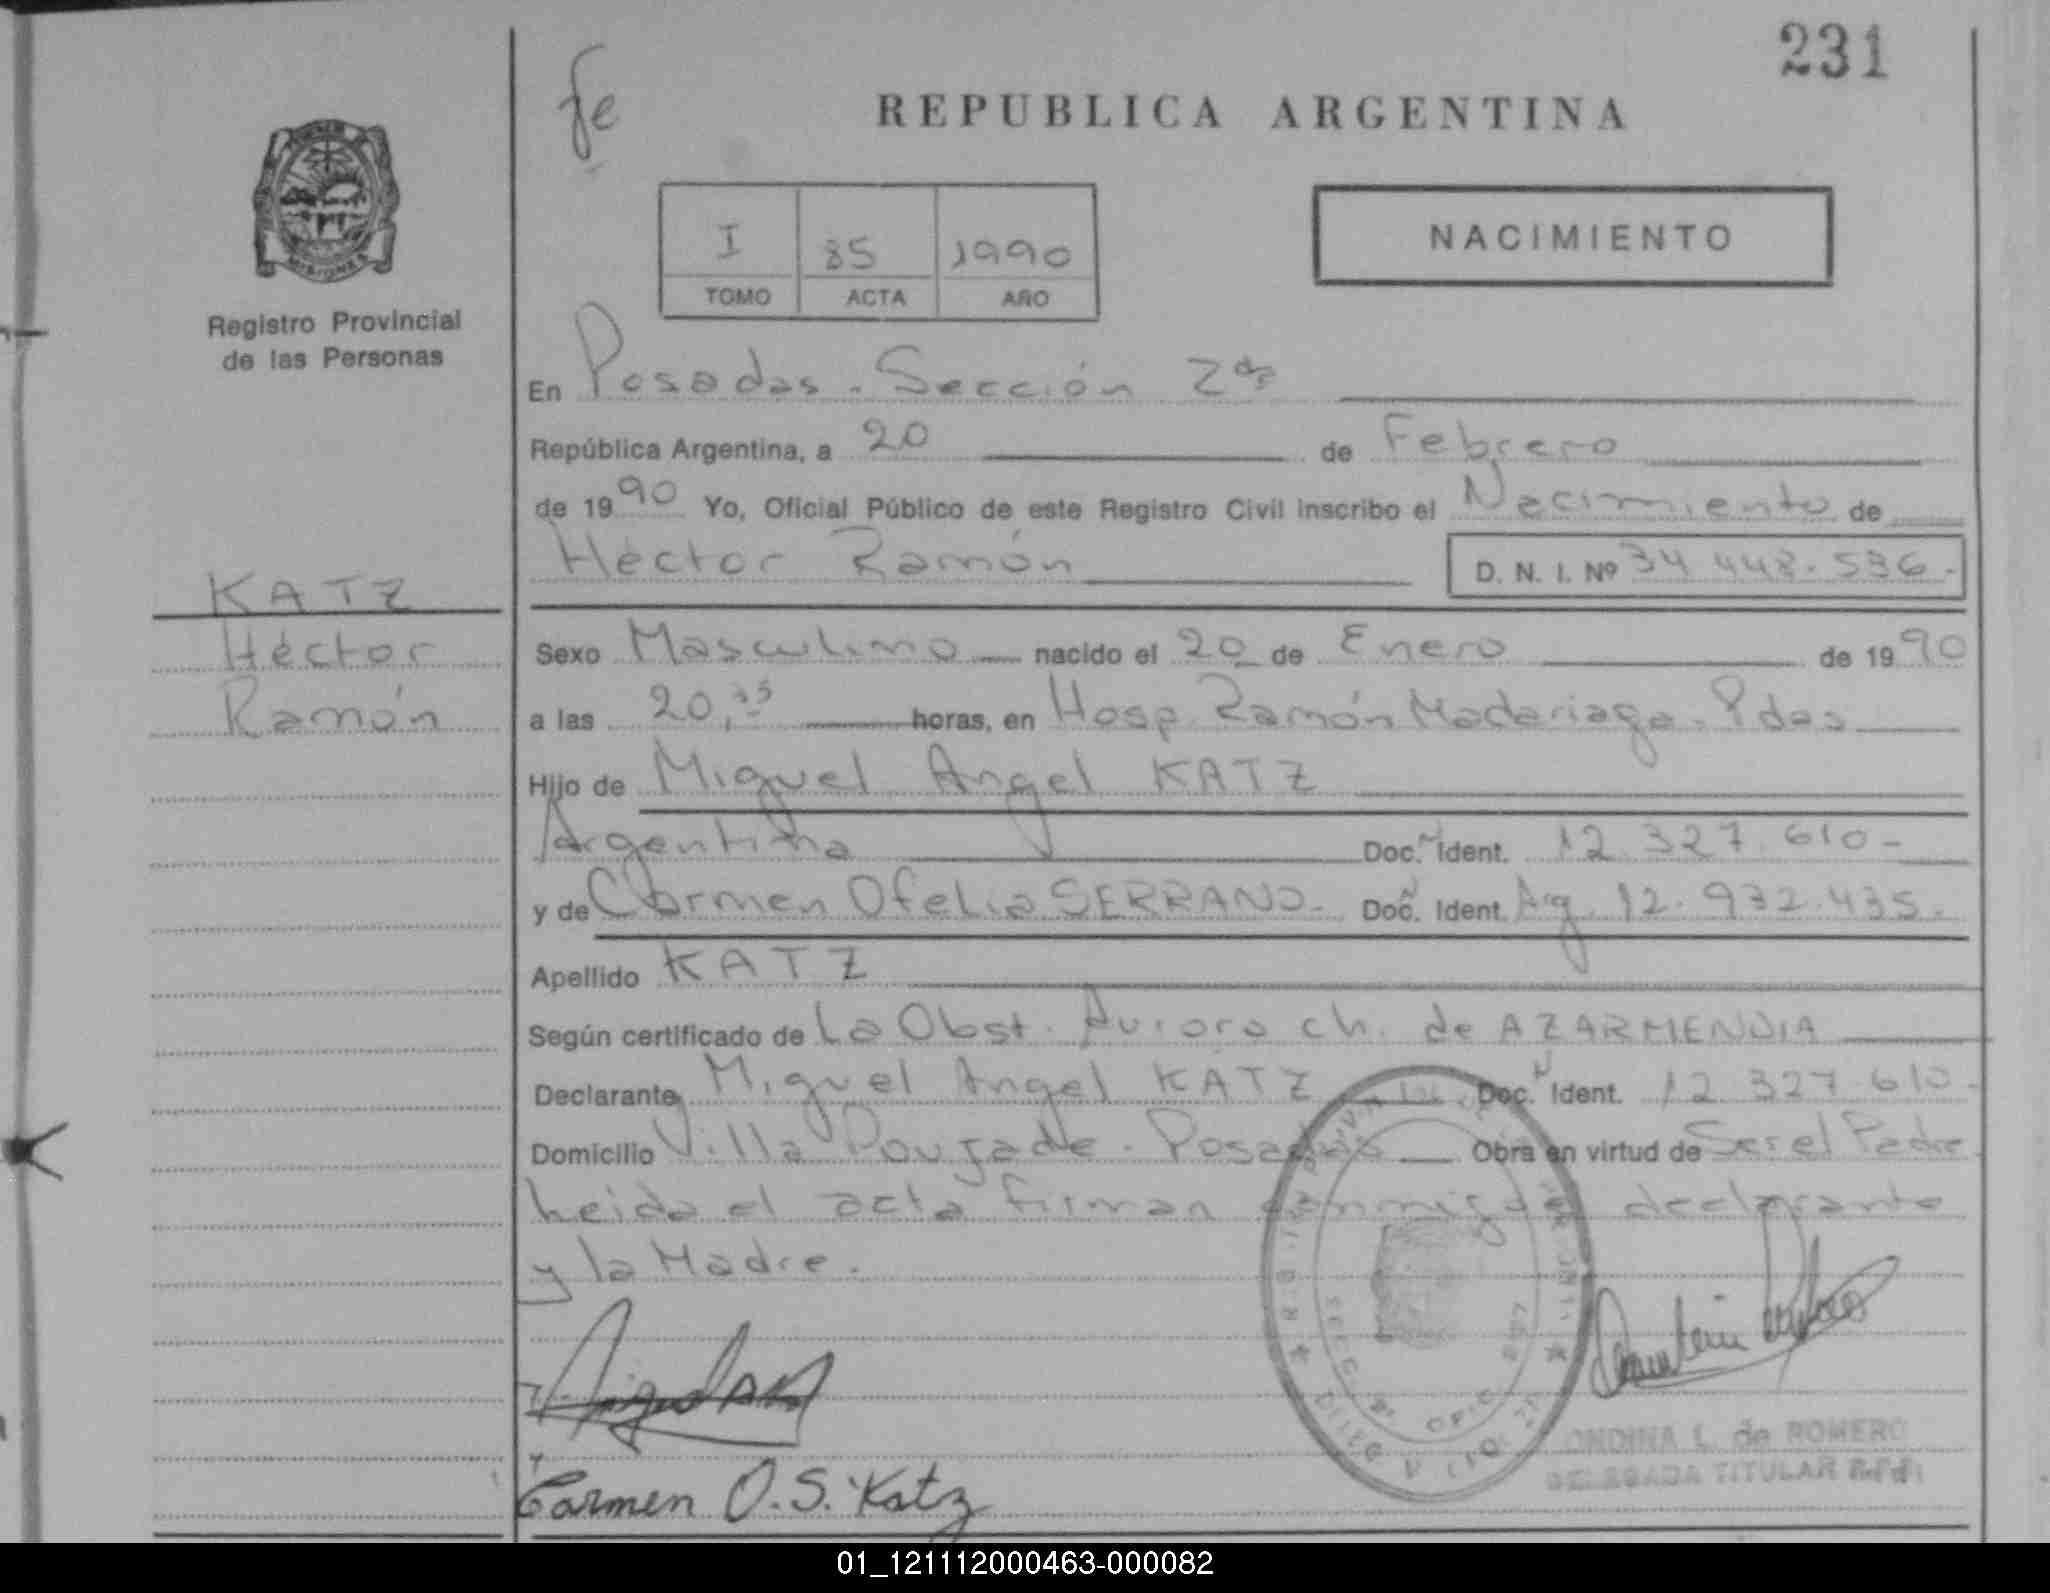 231
fe
REPUBLICA ARGENTINA
MISIONES
Registro Provincial
de las Personas
I 85 1990
TOMO ACTA AÑO
NACIMIENTO
En Posadas - Sección 2da
República Argentina, a 20 de Febrero
de 1990 Yo, Oficial Público de este Registro Civil inscribo el Nacimiento de
Héctor Ramón D. N. I. Nº 34 448.536.-
KATZ
Héctor
Ramón
Sexo Masculino nacido el 20 de Enero de 1990
a las 20,35 horas, en Hosp. Ramón Madariaga. Pdas
Hijo de Miguel Angel KATZ
Argentina Doc. Ident. 12.327.610-
y de Carmen Ofelia SERRANO. Doc. Ident. Arg. 12.932.435.
Apellido KATZ
Según certificado de La Obst. Aurora ch. de AZARMENDIA
Declarante Miguel Angel KATZ Doc. Ident. 12 327.610-
Domicilio Villa Poujade - Posadas Obra en virtud de Ser el Padre.
Leida el acta firman conmigo el declarante
y la Madre.
SECC. 2ª OFIC.
Carmen O. S. Katz
ONDINA L. de ROMERO
DELEGADA TITULAR R.P.P.
01_121112000463-000082